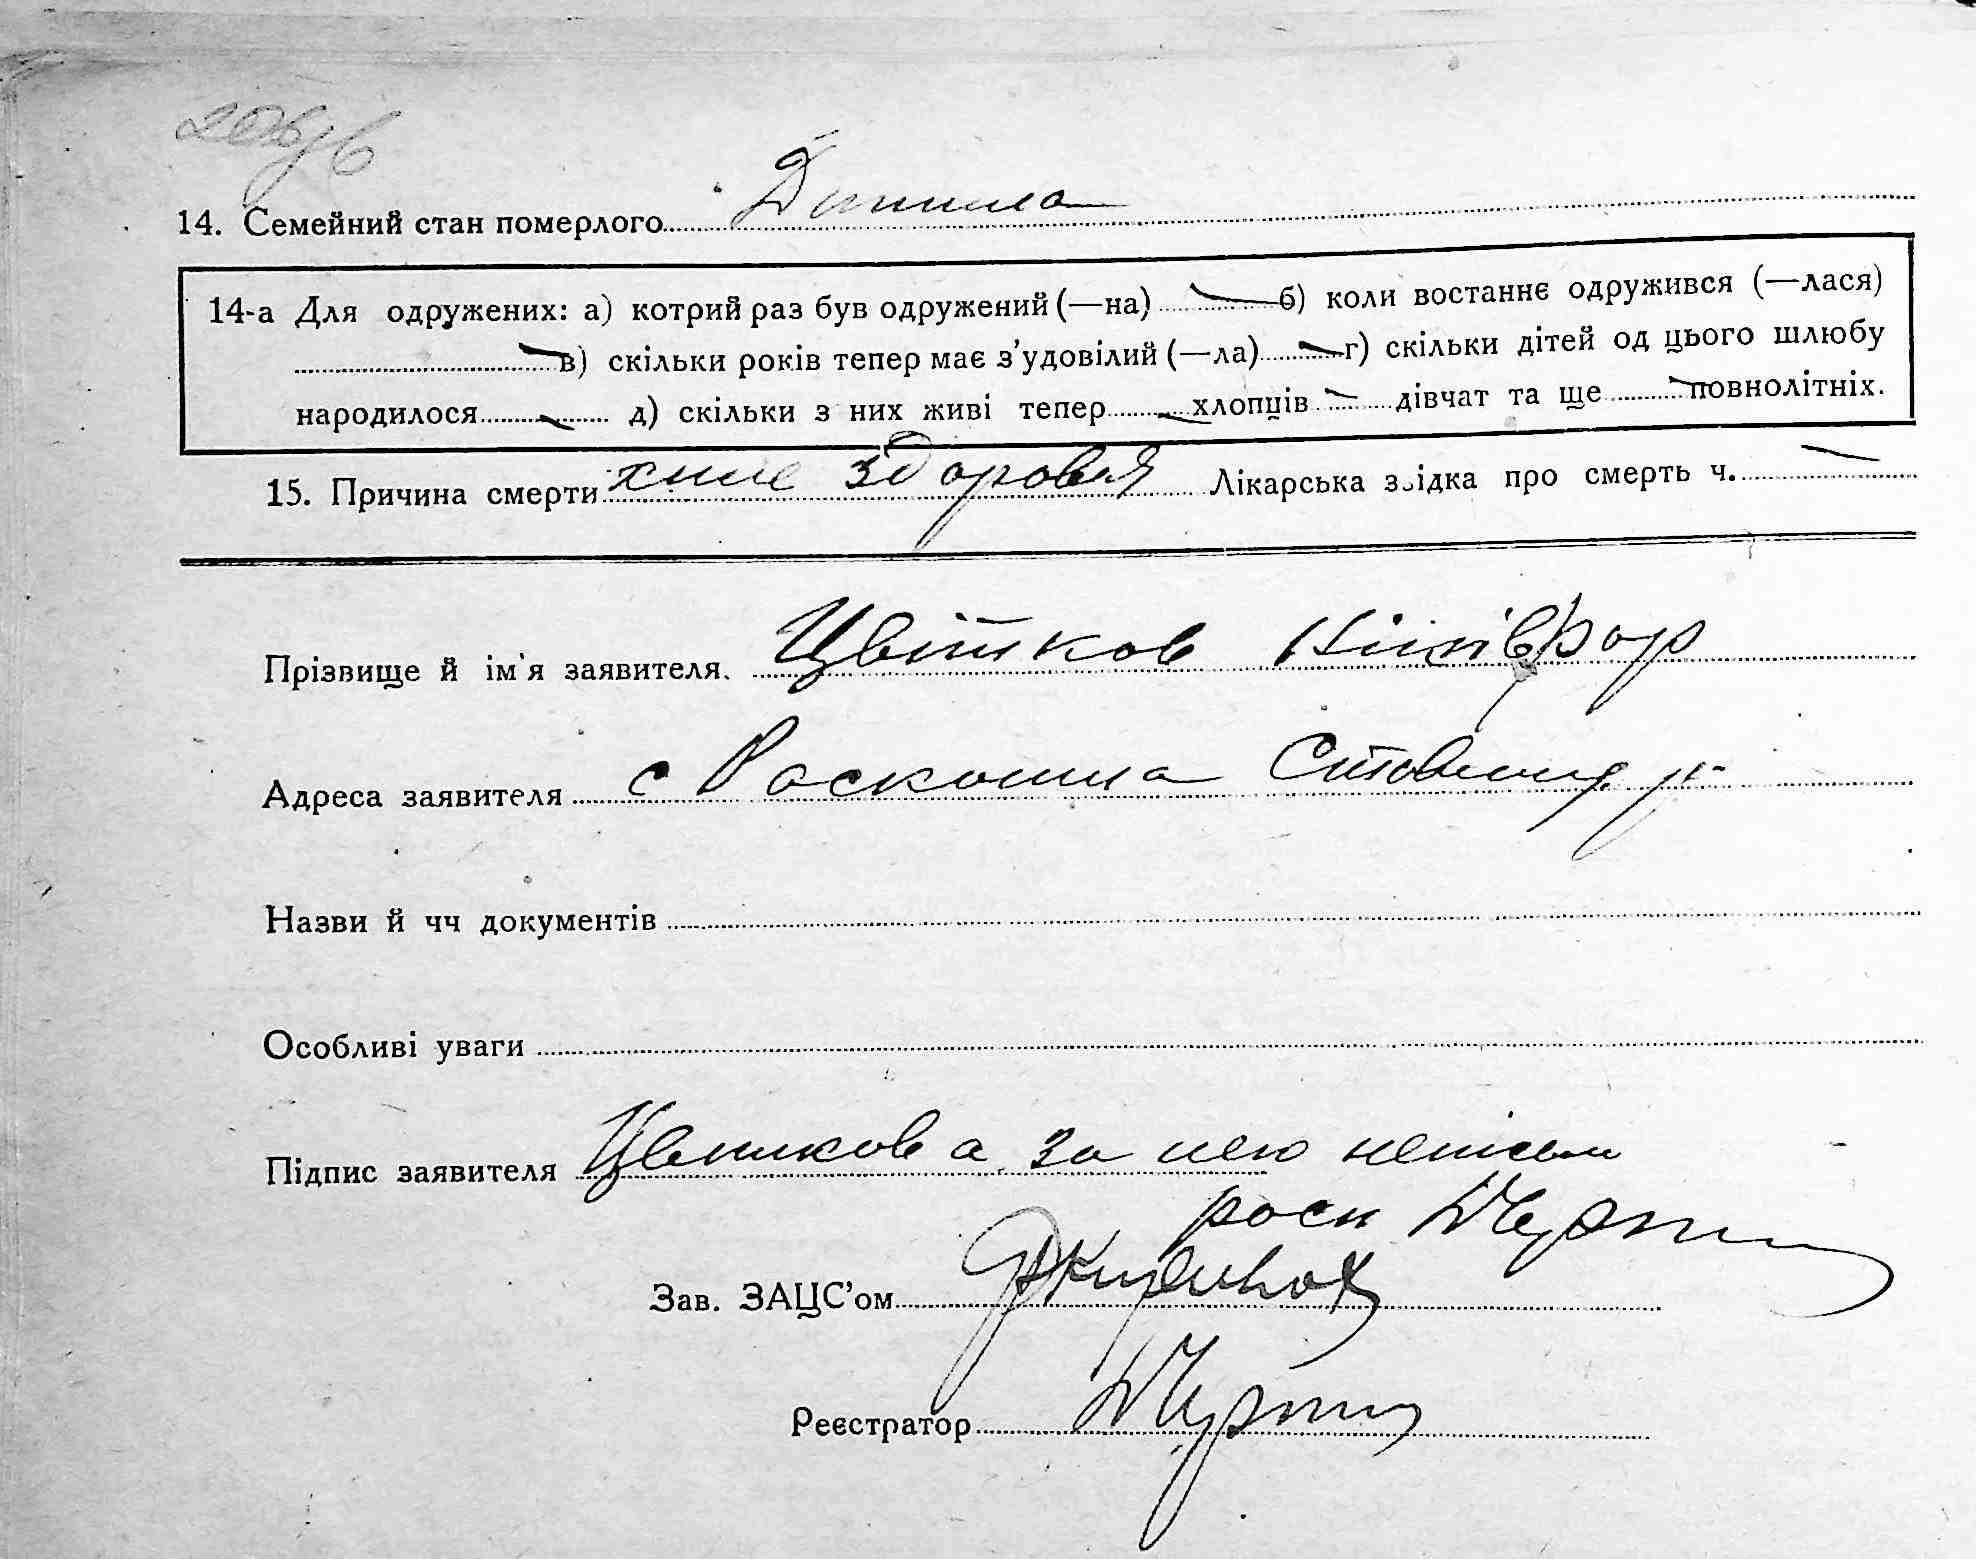 14. Семейний стан померлого Дитина
14-а Для одружених: а) котрий раз був одружений (—на) б) коли востаннє одружився (—лася)
в) скільки років тепер має з’удовілий (—ла) г) скільки дітей од цього шлюбу
народилося д) скільки з них живі тепер хлопців дівчат та ще повнолітніх.
15. Причина смерти хиле здоровея Лікарська звідка про смерть ч.
Прізвище й ім'я заявителя. Цвітков
Адреса заявителя с Роскошна р
Назви й чч документів
Особливі уваги
Підпис заявителя Цвиткова за нею неписьм
роси
Зав. ЗАЦС’ом
Реєстратор